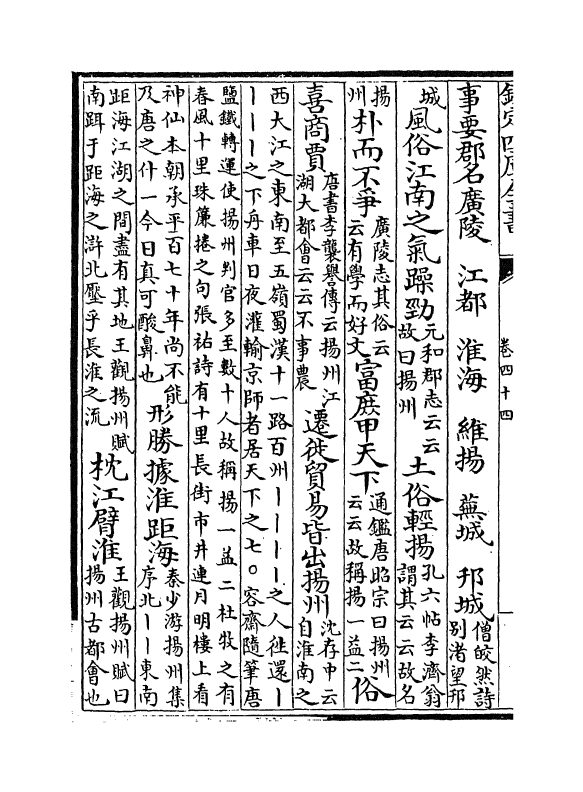 欽定四庫全書
卷四十四
事要郡名廣陵 江都 淮海 維揚 蕪城 邗城僧皎然詩别渚望邗
城風俗江南之氣躁勁元和郡志云云故曰揚州土俗輕揚孔六帖李濟翁謂其云云故名
揚州朴而不爭廣陵志其俗云云有學而好文富庶甲天下通鑑唐昭宗曰揚州云云故稱揚一益二俗
喜商賈唐書李襲譽傳云揚州江湖大都會云云不事農遷徙貿易皆出揚州沈存中云自淮南之
西大江之東南至五嶺蜀漢十一路百州丨丨丨丨之人徃還丨
丨丨丨之下舟車日夜灌輸京師者居天下之七○容齋隨筆唐
鹽鐵轉運使揚州判官多至數十人故稱揚一益二杜牧之有
春風十里珠簾捲之句張祐詩有十里長街市井連月明樓上看
神仙本朝承平百七十年尚不能及唐之什一今日真可酸鼻也形勝據淮距海秦少游揚州集序北丨丨東南
距海江湖之間盡有其地王觀揚州賦南于距海之滸北壓乎長淮之流枕江臂淮王觀揚州賦曰揚州古都會也